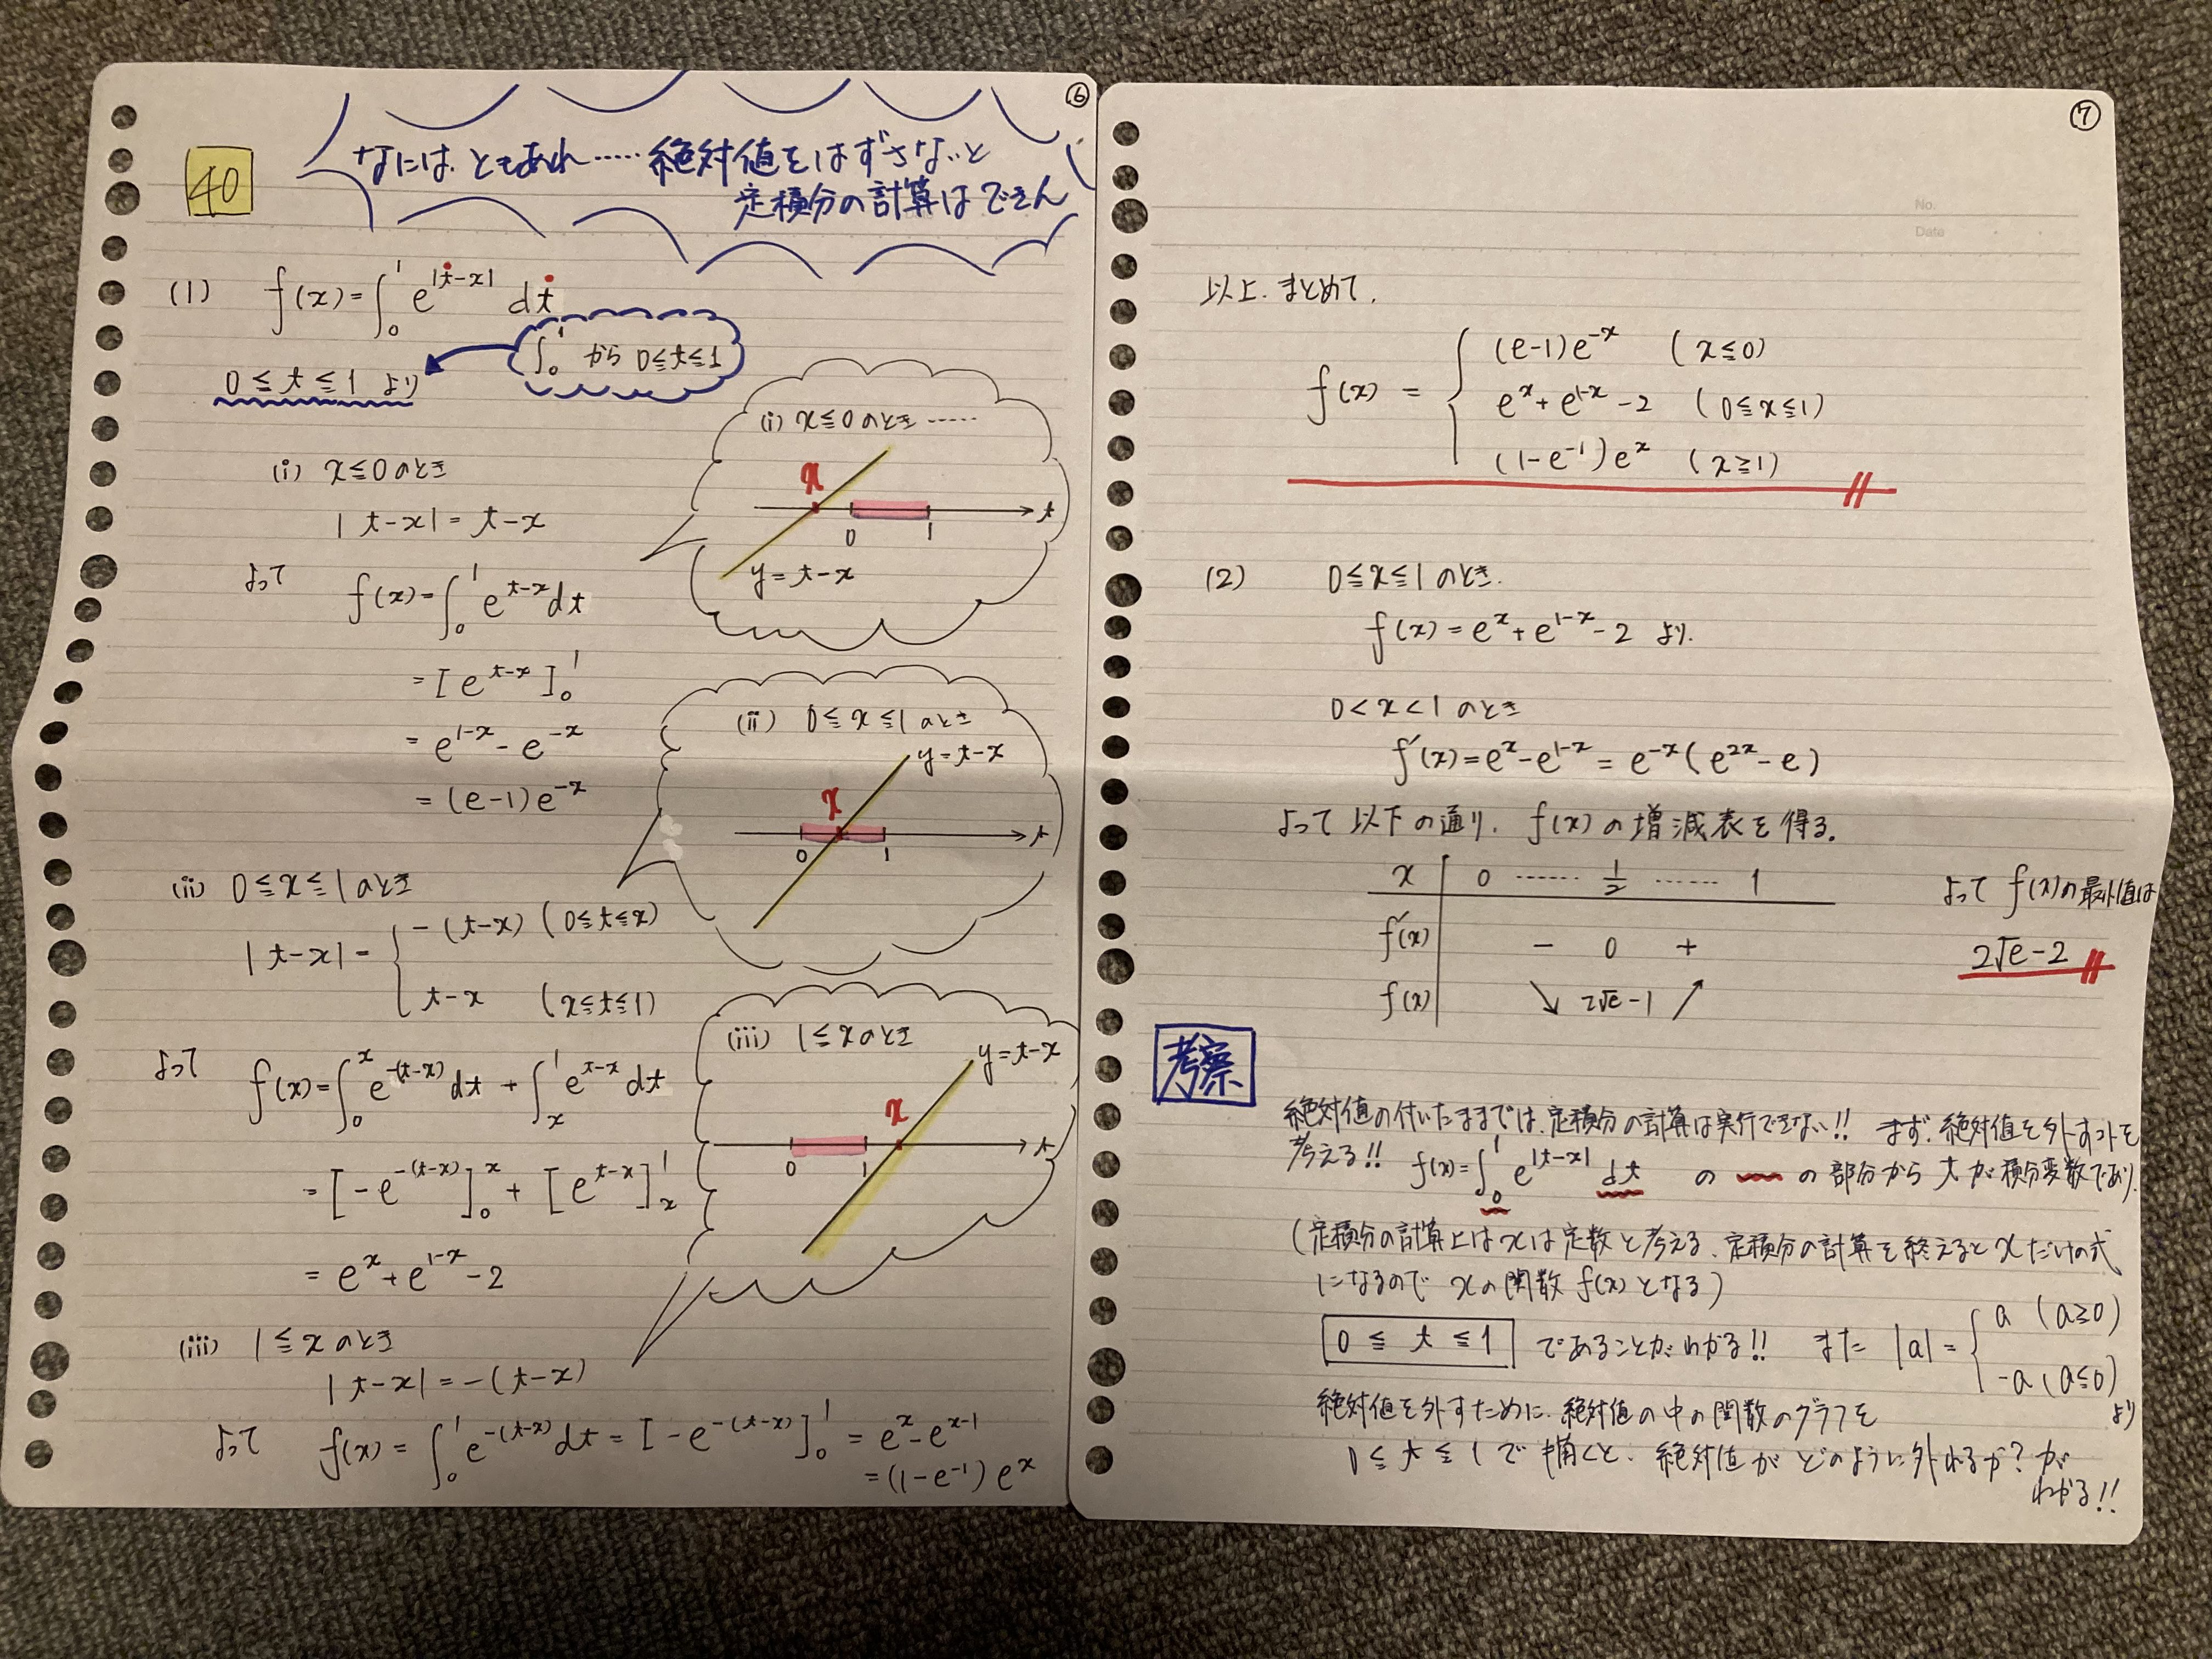 ⑥
40
なには、ともあれ……絶対値をはずさないと
定積分の計算はできん
(1) f(x)=∫₀¹ e^{|t-x|} dt
∫₀¹ から 0≦t≦1
0≦t≦1 より
(i) x≦0のとき
|t-x|=t-x
よって f(x)=∫₀¹ e^{t-x}dt
=[e^{t-x}]₀¹
=e^{1-x}-e^{-x}
=(e-1)e^{-x}
(i) x≦0のとき……
x
0 1 t
y=t-x
(ii) 0≦x≦1のとき
|t-x|= { -(t-x) (0≦t≦x)
t-x (x≦t≦1)
よって f(x)=∫₀ˣ e^{-(t-x)}dt + ∫ₓ¹ e^{t-x}dt
=[-e^{-(t-x)}]₀ˣ + [e^{t-x}]ₓ¹
=e^x+e^{1-x}-2
(ii) 0≦x≦1のとき
y=t-x
x
0 1 t
(iii) 1≦xのとき
|t-x|=-(t-x)
よって f(x)=∫₀¹ e^{-(t-x)}dt=[-e^{-(t-x)}]₀¹=e^x-e^{x-1}
=(1-e^{-1})e^x
(iii) 1≦xのとき
y=t-x
x
0 1 t
⑦
No.
Date
以上、まとめて、
f(x) = { (e-1)e^{-x} (x≦0)
e^x+e^{1-x}-2 (0≦x≦1)
(1-e^{-1})e^x (x≧1)
(2) 0≦x≦1のとき、
f(x)=e^x+e^{1-x}-2 より、
0<x<1のとき
f'(x)=e^x-e^{1-x}=e^{-x}(e^{2x}-e)
よって以下の通り、f(x)の増減表を得る。
x 0 …… 1/2 …… 1
f'(x) - 0 +
f(x) ↘ 2√e-1 ↗
よって f(x)の最小値は
2√e-2
考察
絶対値の付いたままでは、定積分の計算は実行できない!! まず、絶対値を外すコトを
考える!! f(x)=∫₀¹ e^{|t-x|} dt の 〰 の部分から tが積分変数であり、
(定積分の計算上はxは定数と考える、定積分の計算を終えるとxだけの式
になるので xの関数 f(x)となる)
0 ≦ t ≦ 1 であることがわかる!! また |a|= { a (a≧0)
-a (a≦0)
より
絶対値を外すために、絶対値の中の関数のグラフを
0≦t≦1で描くと、絶対値がどのように外れるか?が
わかる!!